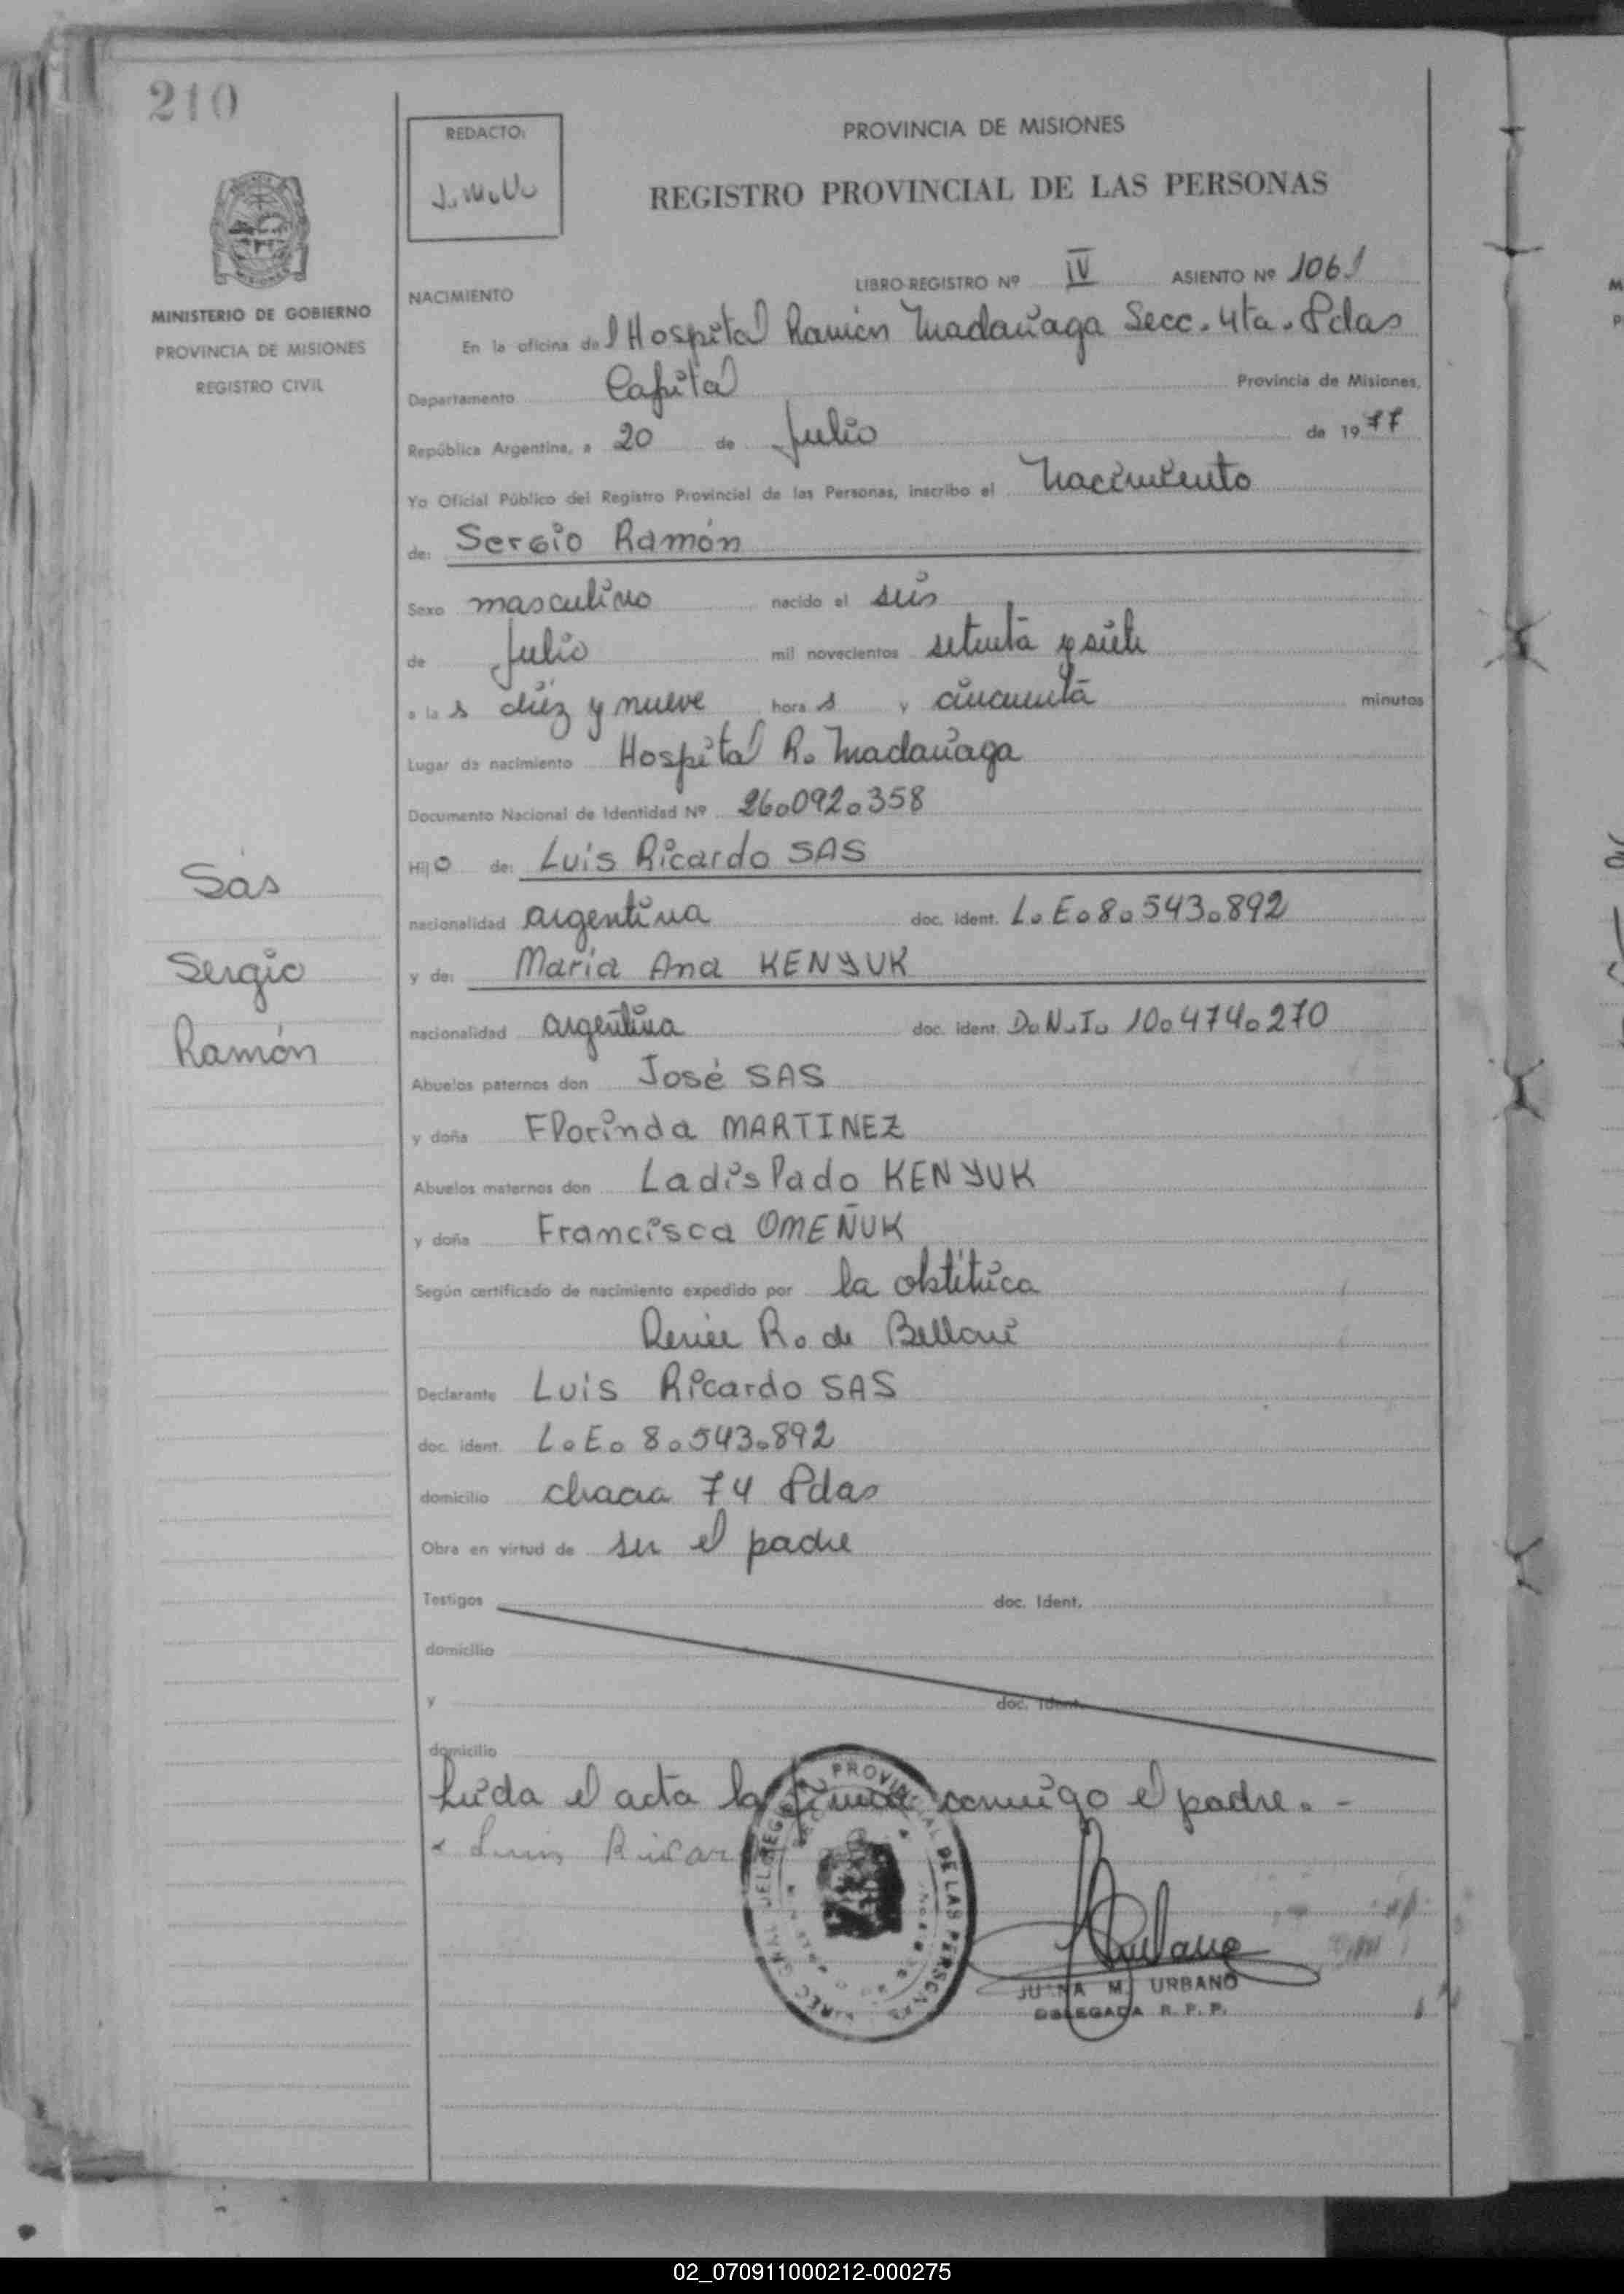 210
REDACTO:
J.M.U.
PROVINCIA DE MISIONES
REGISTRO PROVINCIAL DE LAS PERSONAS
MINISTERIO DE GOBIERNO
PROVINCIA DE MISIONES
REGISTRO CIVIL
LIBRO-REGISTRO Nº IV ASIENTO Nº 1061
NACIMIENTO
En la oficina del Hospital Ramón Madariaga Secc. 4ta. Pdas
Departamento Capital Provincia de Misiones,
República Argentina, a 20 de Julio de 1977
Yo Oficial Público del Registro Provincial de las Personas, inscribo el nacimiento
de: Sergio Ramón
Sexo masculino nacido el seis
de Julio mil novecientos setenta y siete
a las diez y nueve horas y cincuenta minutos
Lugar de nacimiento Hospital R. Madariaga
Documento Nacional de Identidad Nº 26.092.358
Hijo de: Luis Ricardo SAS
Sas
nacionalidad argentina doc. ident. L.E.8.543.892
Sergio
y de: María Ana KENYUK
Ramón
nacionalidad argentina doc. ident. D.N.I. 10.474.270
Abuelos paternos don José SAS
y doña Florinda MARTINEZ
Abuelos maternos don Ladislado KENYUK
y doña Francisca OMEÑUK
Según certificado de nacimiento expedido por la obstétrica
Renée R. de Belloni
Declarante Luis Ricardo SAS
doc. ident. L.E. 8.543.892
domicilio chacra 74 Pdas
Obra en virtud de ser el padre
Testigos doc. Ident.
domicilio
y doc. Ident.
domicilio
Leída el acta la firma conmigo el padre. -
Luis Ricar
PROVINCIAL DE LAS PERSONAS
JUANA M. URBANO
DELEGADA R. P. P.
02_070911000212-000275